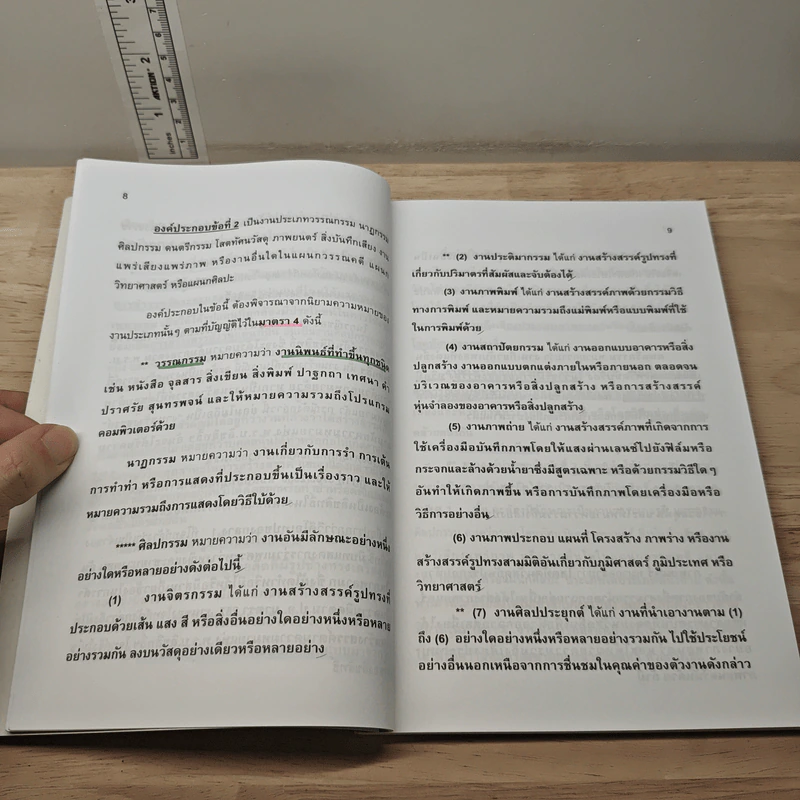 inches
1
2
ARTKER
8
องค์ประกอบข้อที่ 2 เป็นงานประเภทวรรณกรรม นาฏกรรม
ศิลปกรรม ดนตรีกรรม โสตทัศนวัสดุ ภาพยนตร์ สิ่งบันทึกเสียง งาน
แพร่เสียงแพร่ภาพ หรืองานอื่นใดในแผนกวรรณคดี แผนก
วิทยาศาสตร์ หรือแผนกศิลปะ
องค์ประกอบในข้อนี้ ต้องพิจารณาจากนิยามความหมายของ
งานประเภทนั้นๆ ตามที่บัญญัติไว้ในมาตรา 4 ดังนี้
** วรรณกรรม หมายความว่า งานนิพนธ์ที่ทำขึ้นทุกชนิด
เช่น หนังสือ จุลสาร สิ่งเขียน สิ่งพิมพ์ ปาฐกถา เทศนา คำ
ปราศรัย สุนทรพจน์ และให้หมายความรวมถึงโปรแกรม
คอมพิวเตอร์ด้วย
นาฏกรรม หมายความว่า งานเกี่ยวกับการรำ การเต้น
การทำท่า หรือการแสดงที่ประกอบขึ้นเป็นเรื่องราว และให้
หมายความรวมถึงการแสดงโดยวิธีใบ้ด้วย
***** ศิลปกรรม หมายความว่า งานอันมีลักษณะอย่างหนึ่ง
อย่างใดหรือหลายอย่างดังต่อไปนี้
(1) งานจิตรกรรม ได้แก่ งานสร้างสรรค์รูปทรงที่
ประกอบด้วยเส้น แสง สี หรือสิ่งอื่นอย่างใดอย่างหนึ่งหรือหลาย
อย่างรวมกัน ลงบนวัสดุอย่างเดียวหรือหลายอย่าง
9
** (2) งานประติมากรรม ได้แก่ งานสร้างสรรค์รูปทรงที่
เกี่ยวกับปริมาตรที่สัมผัสและจับต้องได้
(3) งานภาพพิมพ์ ได้แก่ งานสร้างสรรค์ภาพด้วยกรรมวิธี
ทางการพิมพ์ และหมายความรวมถึงแม่พิมพ์หรือแบบพิมพ์ที่ใช้
ในการพิมพ์ด้วย
(4) งานสถาปัตยกรรม ได้แก่ งานออกแบบอาคารหรือสิ่ง
ปลูกสร้าง งานออกแบบตกแต่งภายในหรือภายนอก ตลอดจน
บริเวณของอาคารหรือสิ่งปลูกสร้าง หรือการสร้างสรรค์
หุ่นจำลองของอาคารหรือสิ่งปลูกสร้าง
(5) งานภาพถ่าย ได้แก่ งานสร้างสรรค์ภาพที่เกิดจากการ
ใช้เครื่องมือบันทึกภาพโดยให้แสงผ่านเลนซ์ไปยังฟิล์มหรือ
กระจกและล้างด้วยน้ำยาซึ่งมีสูตรเฉพาะ หรือด้วยกรรมวิธีใด ๆ
อันทำให้เกิดภาพขึ้น หรือการบันทึกภาพโดยเครื่องมือหรือ
วิธีการอย่างอื่น
(6) งานภาพประกอบ แผนที่ โครงสร้าง ภาพร่าง หรืองาน
สร้างสรรค์รูปทรงสามมิติอันเกี่ยวกับภูมิศาสตร์ ภูมิประเทศ หรือ
วิทยาศาสตร์
** (7) งานศิลปประยุกต์ ได้แก่ งานที่นำเอางานตาม (1)
ถึง (6) อย่างใดอย่างหนึ่งหรือหลายอย่างรวมกัน ไปใช้ประโยชน์
อย่างอื่นนอกเหนือจากการชื่นชมในคุณค่าของตัวงานดังกล่าว